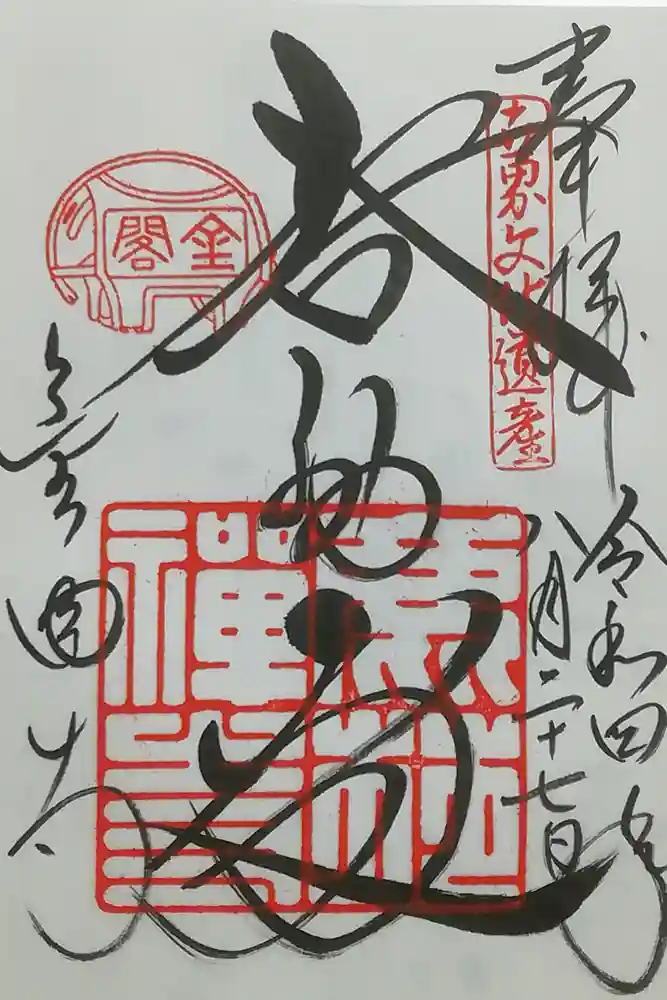 奉拝
令和四年
八月二十七日
世界文化遺産
舎利殿
鹿苑禪寺
金閣
金閣寺